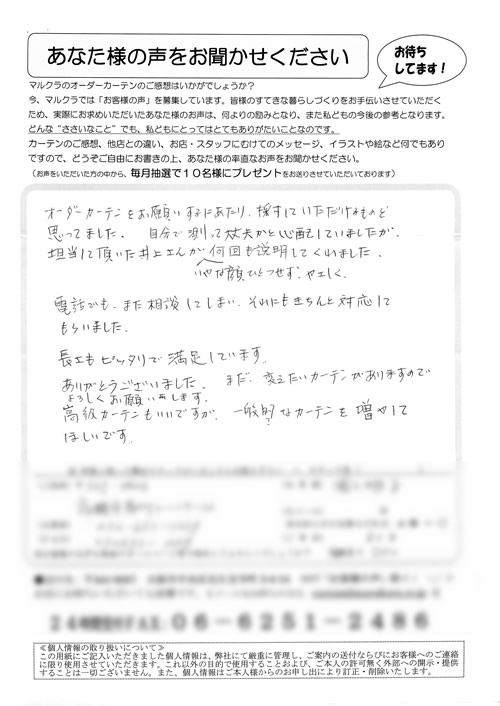 あなた様の声をお聞かせください
お待ち
してます！
マルクラのオーダーカーテンのご感想はいかがでしょうか？
今、マルクラでは「お客様の声」を募集しています。皆様のすてきな暮らしづくりをお手伝いさせていただく
ため、実際にお求めいただいたあなた様のお声は、何よりの励みとなり、また私どもの今後の参考となります。
どんな“ささいなこと”でも、私どもにとってはとてもありがたいことなのです。
カーテンのご感想、他店との違い、お店・スタッフにむけてのメッセージ、イラストや絵など何でもあり
ですので、どうぞご自由にお書きの上、あなた様の率直なお声をお聞かせください。
（お声をいただいた方の中から、毎月抽選で１０名様にプレゼントをお送りさせていただいております）
オーダーカーテンをお願いするにあたり、採寸していただけるものと
思ってました。 自分で測って大丈夫かと心配していましたが、
担当して頂いた井上さんが 何回も説明してくれました。
いやな顔ひとつせず、やさしく。
電話でも、また相談してしまい、それにもきちんと対応して
もらいました。
長さもピッタリで満足しています。
ありがとうございました。 まだ、変えたいカーテンがありますので
よろしくお願いします。
高級カーテンもいいですが、一般的なカーテンを増やして
ほしいです。
２４時間受付ＦＡＸ：０６－６２５１－２４８６
≪個人情報の取り扱いについて≫
この用紙にご記入いただきました個人情報は、弊社にて厳重に管理し、ご案内の送付ならびにお客様へのご連絡
に限り使用させていただきます。これ以外の目的で使用することおよび、ご本人の許可無く外部への開示・提供
することは一切ございません。また、個人情報はご本人様からのお申し出により訂正・削除いたします。